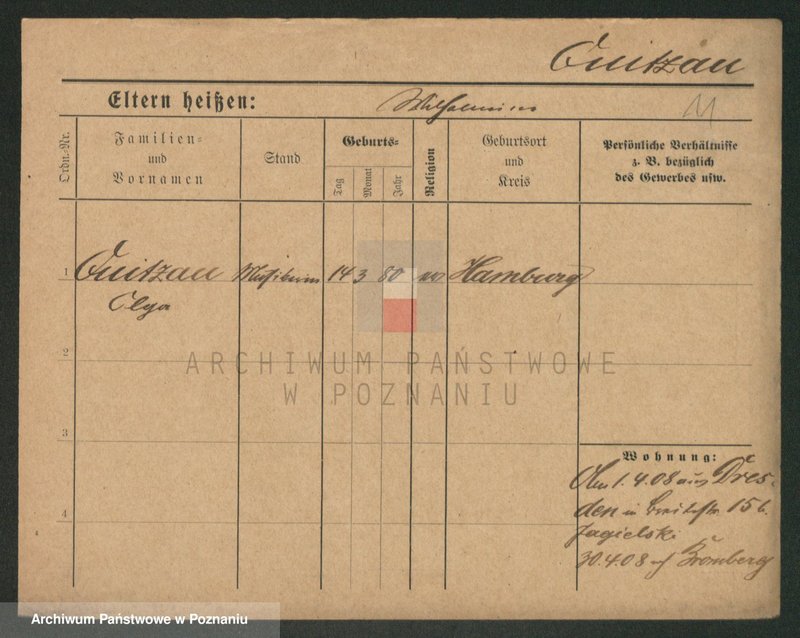 Quitzau
Eltern heißen:
11
Ordn.-Nr.
Familien-
und
Vornamen
Stand
Geburts-
Tag
Monat
Jahr
Religion
Geburtsort
und
Kreis
Persönliche Verhältnisse
z. B. bezüglich
des Gewerbes usw.
1
Quitzau 14 3 80 Hamburg
Olga
2
ARCHIWUM PAŃSTWOWE
W POZNANIU
3
Wohnung:
Am 1.4.08 aus Dres-
den in 15 b.
Jagielski
4
30.4.08 Bromberg
Archiwum Państwowe w Poznaniu